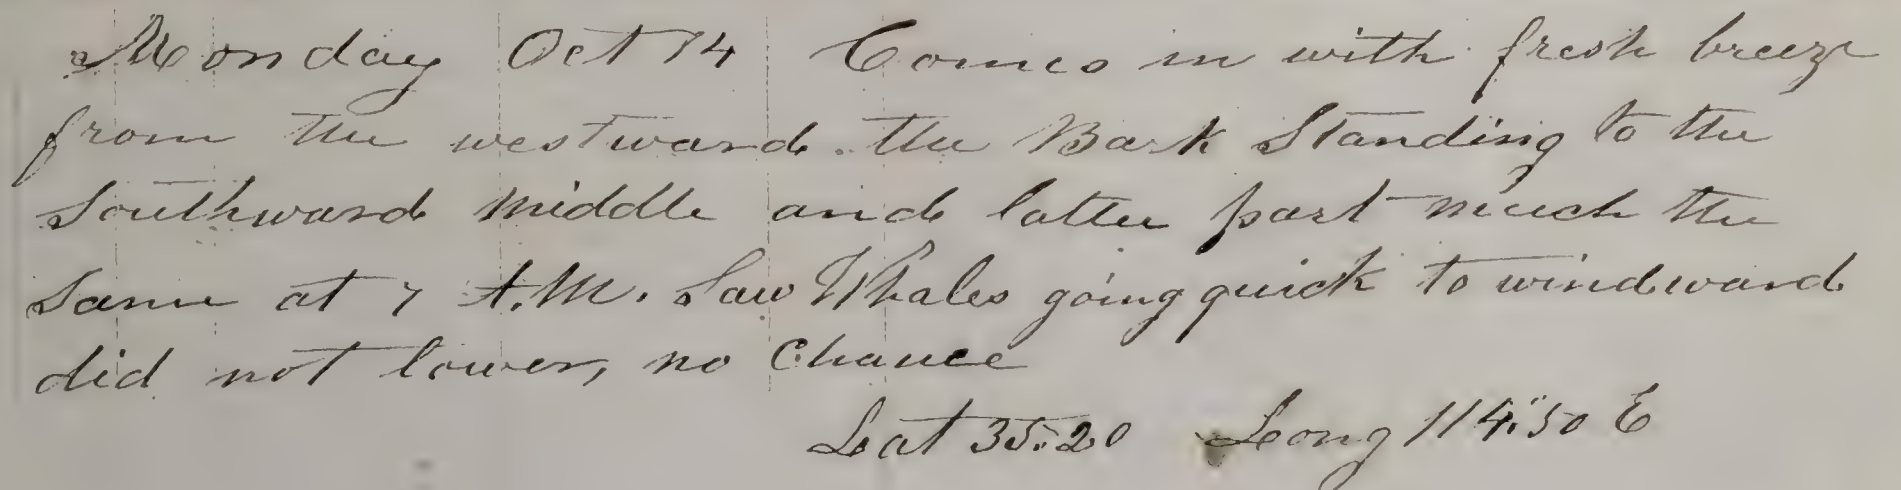 Monday Oct 14 Comes in with fresh breeze
from the westward. the Bark Standing to the
Southward middle and latter part much the
Same at 7 A.M. Saw Whales going quick to windward
did not lower, no Chance
Lat 35.20 Long 114.50 E